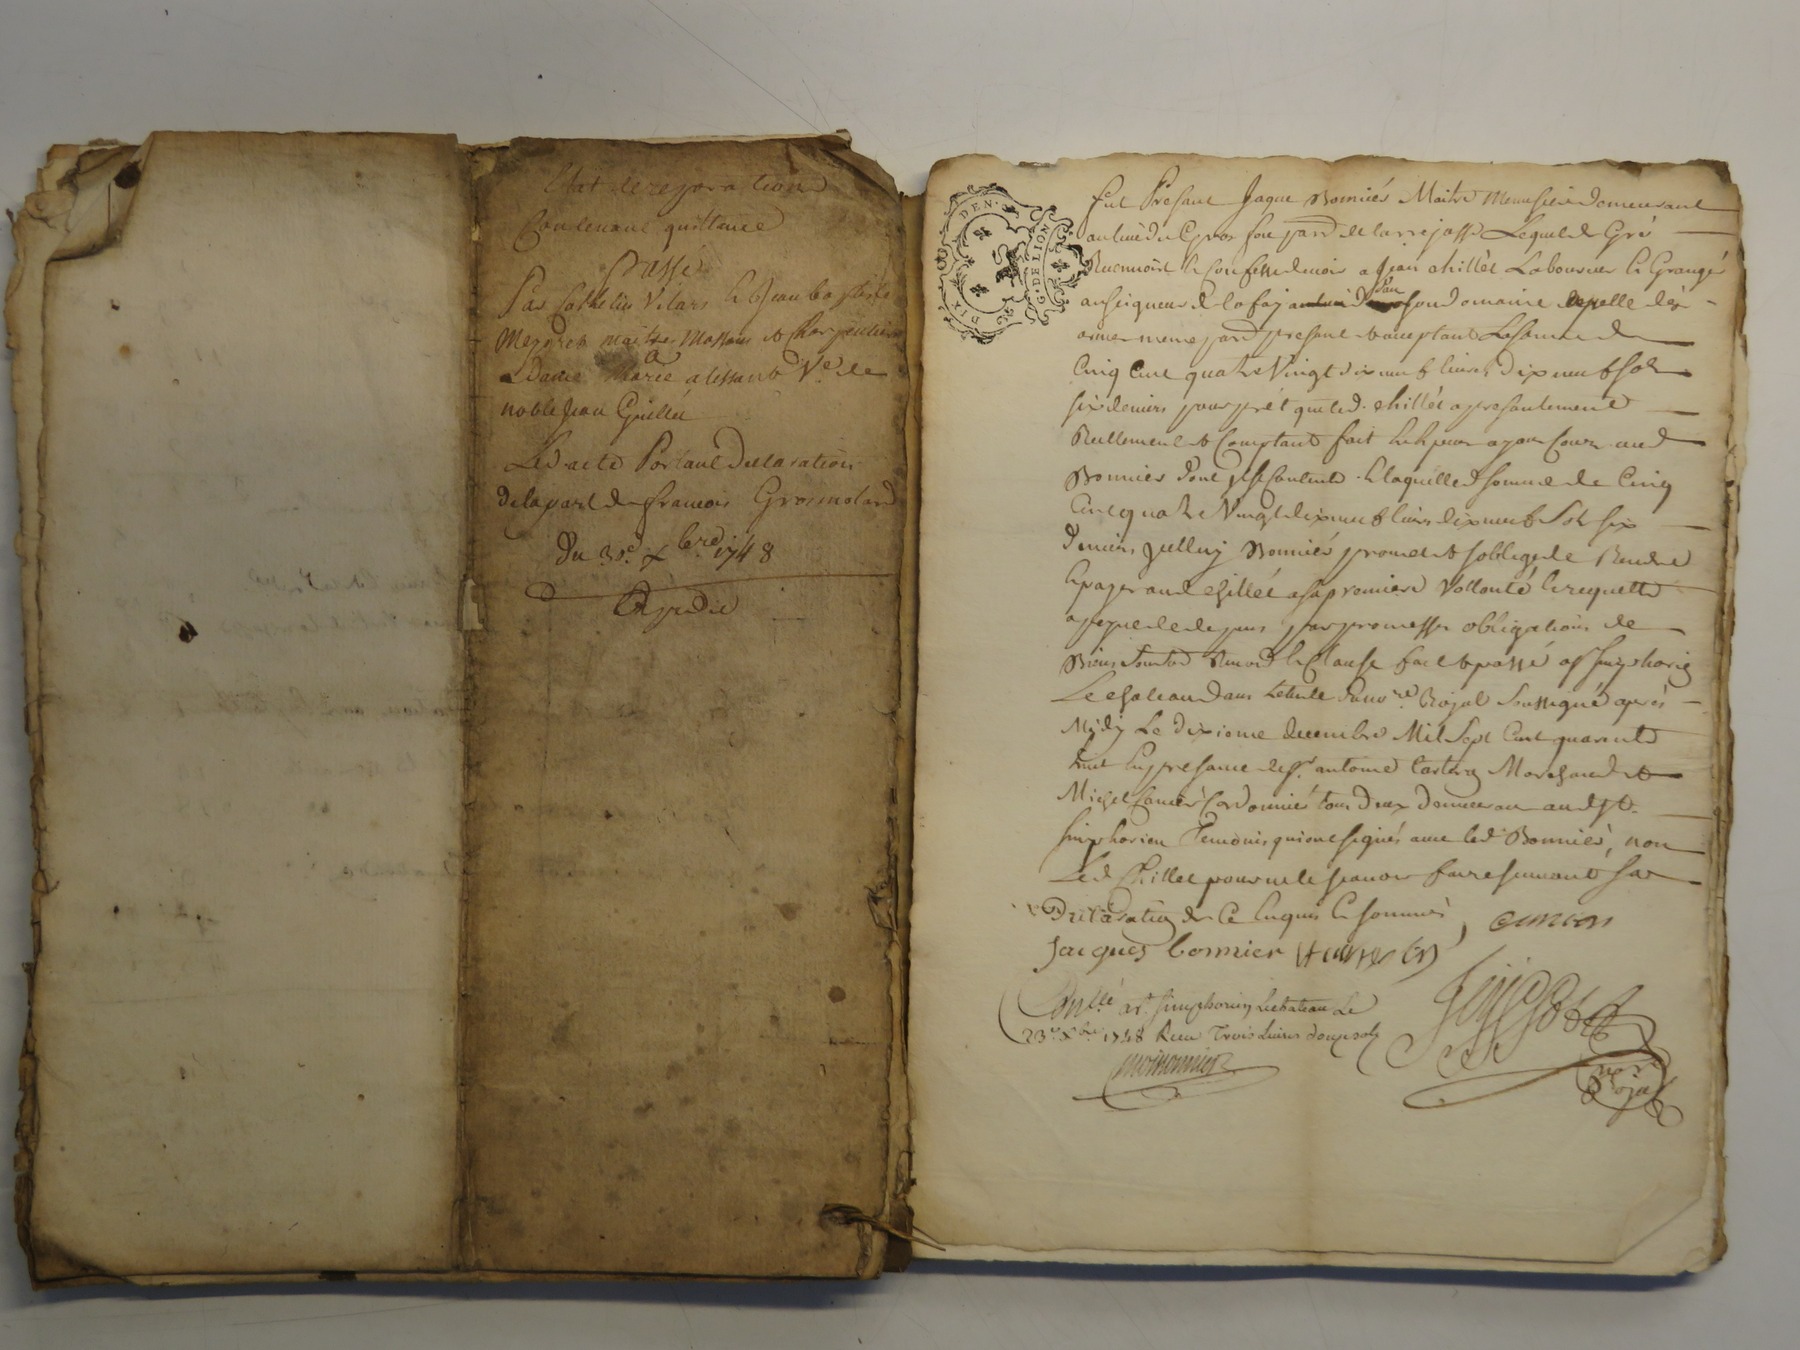 Etat de reparation
Contenant quittance
Passé
Par Cathelin Vilars et Jean baptiste
maitres Massons et Charpentiers
a
Dame Marie alissant Ve de
noble Jean Guillet
Led acte Portant Declaration
de la part de francois Grosmolard
Du 30e xbre 1748
Expedié
DIX DEN.
G.D.E LION
fut Presant Jaque Bonniér Maitre Menusier demeurant
au lieu du Gros fou par de larrejasse Lequel de Gré
Reconnoit et Confesse devoir a Jean chillet Laboureur et Granger
au seigneur de la fay son domaine
meme par presant et aceptant La somme de
Cinq Cent quatre Vingt dix neuf livres dix neuf sols
six deniers pour prét que led. chillét a presentement
Reellement et Comptant fait aud
Bonnier dont il se Contente. Laquelle somme de Cinq
Cent quatre Vingt dix neuf livres dix neuf Sols six
deniers Jcelluy Bonniér promet et soblige de Rendre
et payer aud chillét a sa premiere Vollonté et requette
a peyne de depens par promesses obligations de
Biens et Clause fait et passé a St Simphorien
Le chateau dans Letude du nore Royal Soussigné aprés
Midy Le dixieme decembre Mil Sept Cent quarente
huit En presance de sr antoine Marchand et
Michel Cordonnier tous deux demeurant aud St.
Simphorien Temoins qui ont signés avec led Bonniér, non
Led Chillet pour ne le scavoir faire suivant sa
Declaration de Ce Enquis et sommés
Jacques bonnier
Conllé a St. Simphorien Lechateau Le
23e xbre 1748 Recu Trois Livres douze sols
nore
Royal